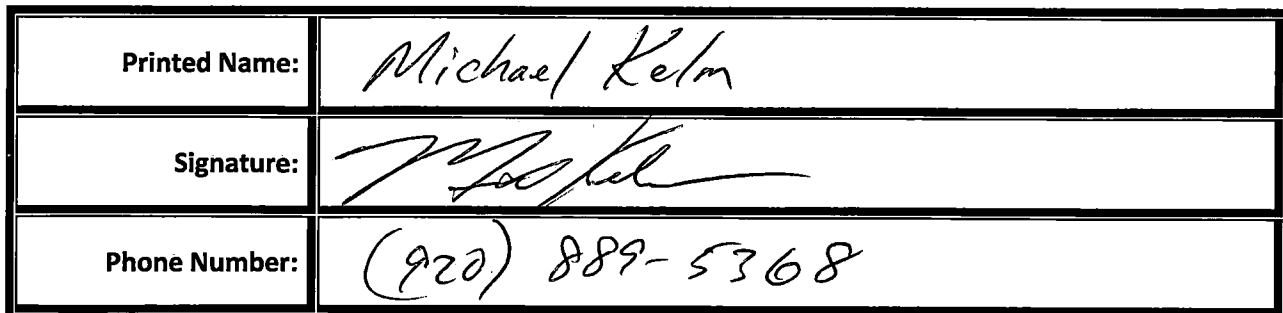 Printed Name: Michael Kelm
Signature:
Phone Number: (920) 889-5368